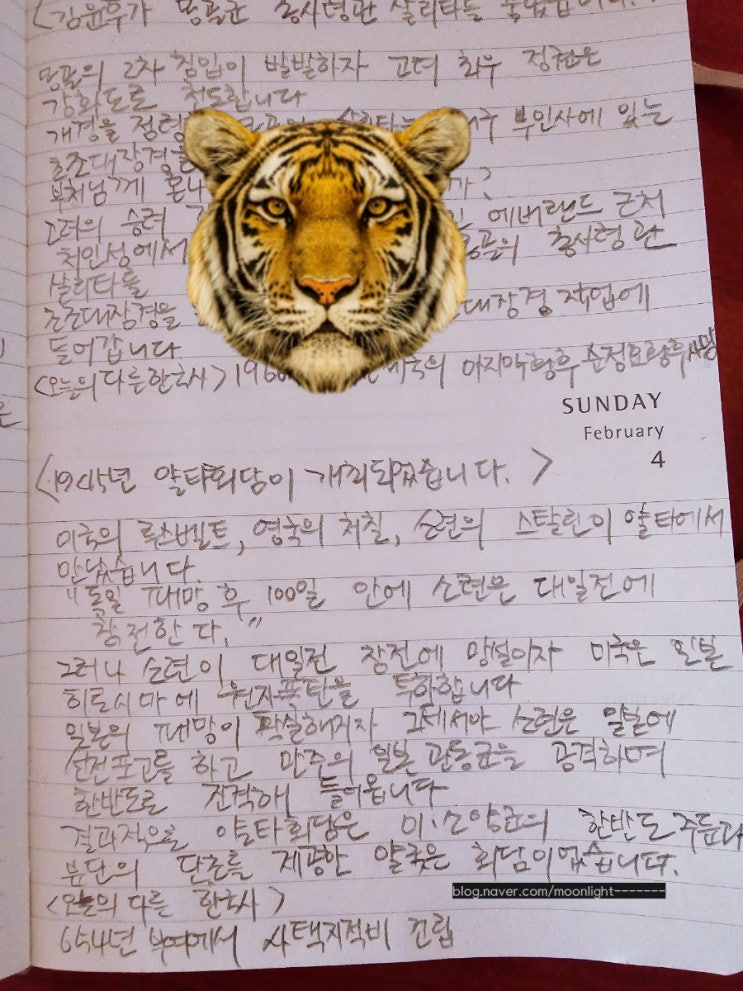 <김윤후가 몽골군 총사령관 살리타를
몽골의 2차 침입이 발발하자 고려 최우 정권은
강화도로 천도합니다
개경을 점령 부인사에 있는
초조대장경을
부처님께 혼나 가?
고려의 승려 에버랜드 근처
처인성에서 몽골의 총사령관
살리타를
초조대장경을 대장경 작업에
들어갑니다
<오늘의 다른 한국사> 마지막 황후 순정효황후 사망
SUNDAY
February
4
<1945년 얄타회담이 개최되었습니다. >
미국의 루스벨트, 영국의 처칠, 소련의 스탈린이 얄타에서
만났습니다.
"독일 패망 후 100일 안에 소련은 대일전에
참전한다."
그러나 소련이 대일전 참전에 망설이자 미국은 일본
히로시마에 원자폭탄을 투하합니다
일본의 패망이 확실해지자 그제서야 소련은 일본에
선전포고를 하고 만주의 일본 관동군을 공격하며
한반도로 진격해 들어옵니다
결과적으로 얄타회담은 미·소 양군의 한반도 주둔과
분단의 단초를 제공한 얄궂은 회담이었습니다.
blog.naver.com/moonlight-------
<오늘의 다른 한국사 >
654년 부여에서 사택지적비 건립